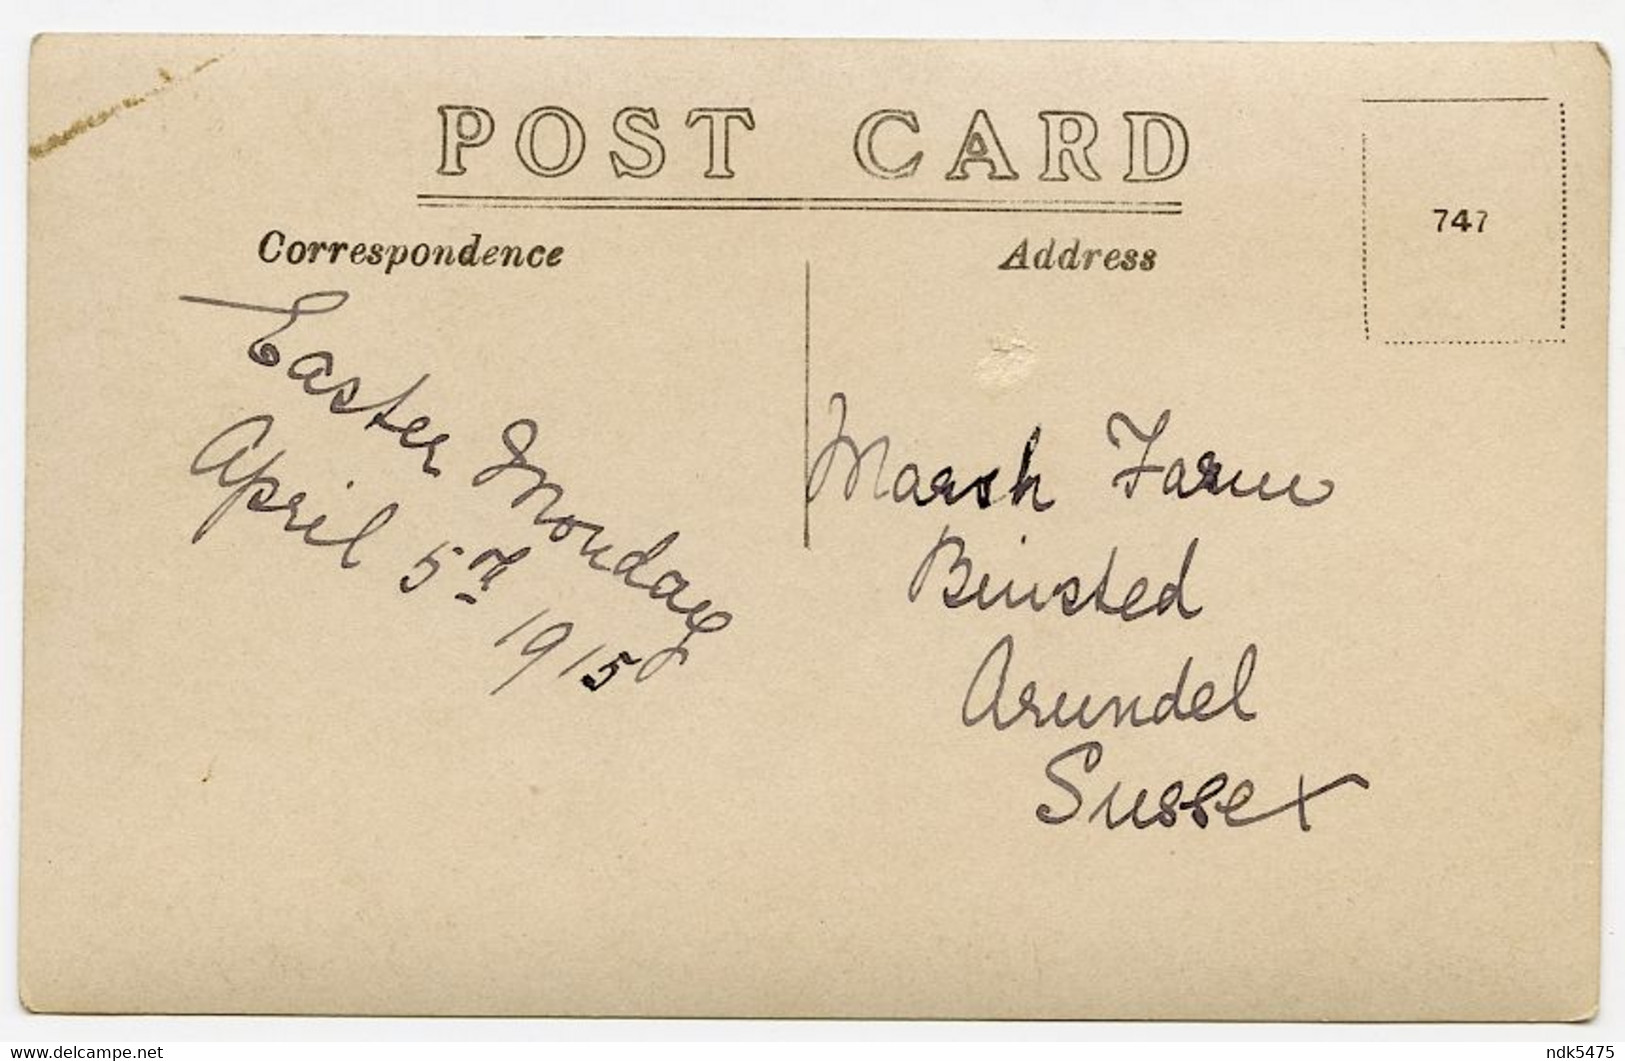 POST CARD
Correspondence
Address
747
Easter Monday
April 5th 1915
Marsh Farm
Binsted
Arundel
Sussex
delcampe.net
ndk5475